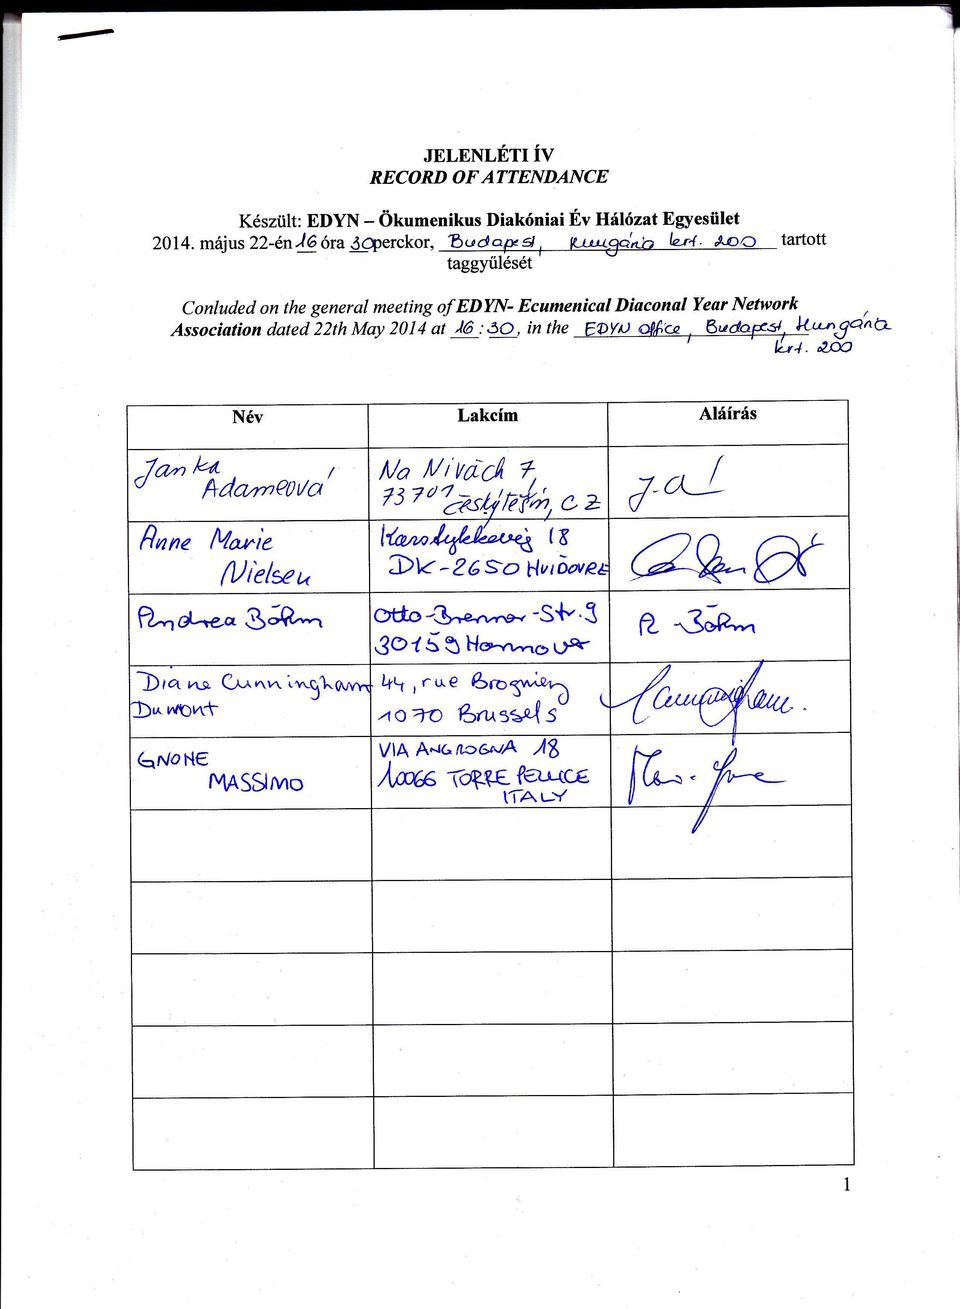 JELENLÉTI ÍV
RECORD OF ATTENDANCE
Készült: EDYN – Ökumenikus Diakóniai Év Hálózat Egyesület
2014. május 22-én 16 óra 30perckor, Budapest, Hungária krt. 200 tartott
taggyűlését
Conluded on the general meeting of EDYN- Ecumenical Diaconal Year Network
Association dated 22th May 2014 at 16:30, in the EDYN office, Budapest, Hungária
krt. 200
Név Lakcím Aláírás
Janka
Adameová
Na Nivách 7,
73701
Český Těšín, CZ
J. a
Anne Marie
Nielsen
18
DK-2650 HVIDOVRE
Andrea Böhm
Otto-Brenner-Str. 9
30159 Hannover
A. Böhm
Diane Cunningham
Dumont
44, rue Brogniez
1070 Brussels
Cunningham.
GNONE
MASSIMO
VIA ANGROGNA 18
10066 TORRE PELLICE
ITALY
1